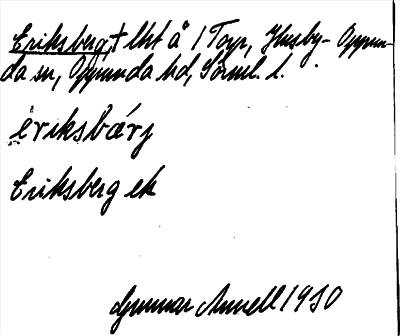 Eriksberg, † lht å 1 Torp, Husby-Oppun-
da sn, Oppunda hd, Sörml. l.
èriksbárj
Eriksberg ek
Gunnar Annell 1930